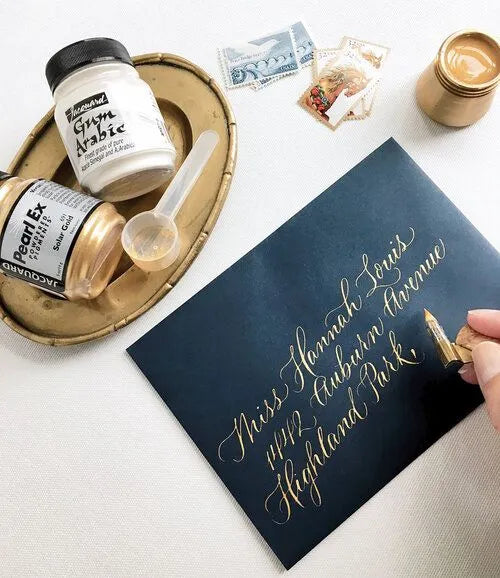 Jacquard
Gum
Arabic
Finest grade of pure
Pearl Ex
POWDERED
PIGMENTS
JACQUARD
Solar Gold
Miss Hannah Louis
4442 Auburn Avenue
Highland Park,